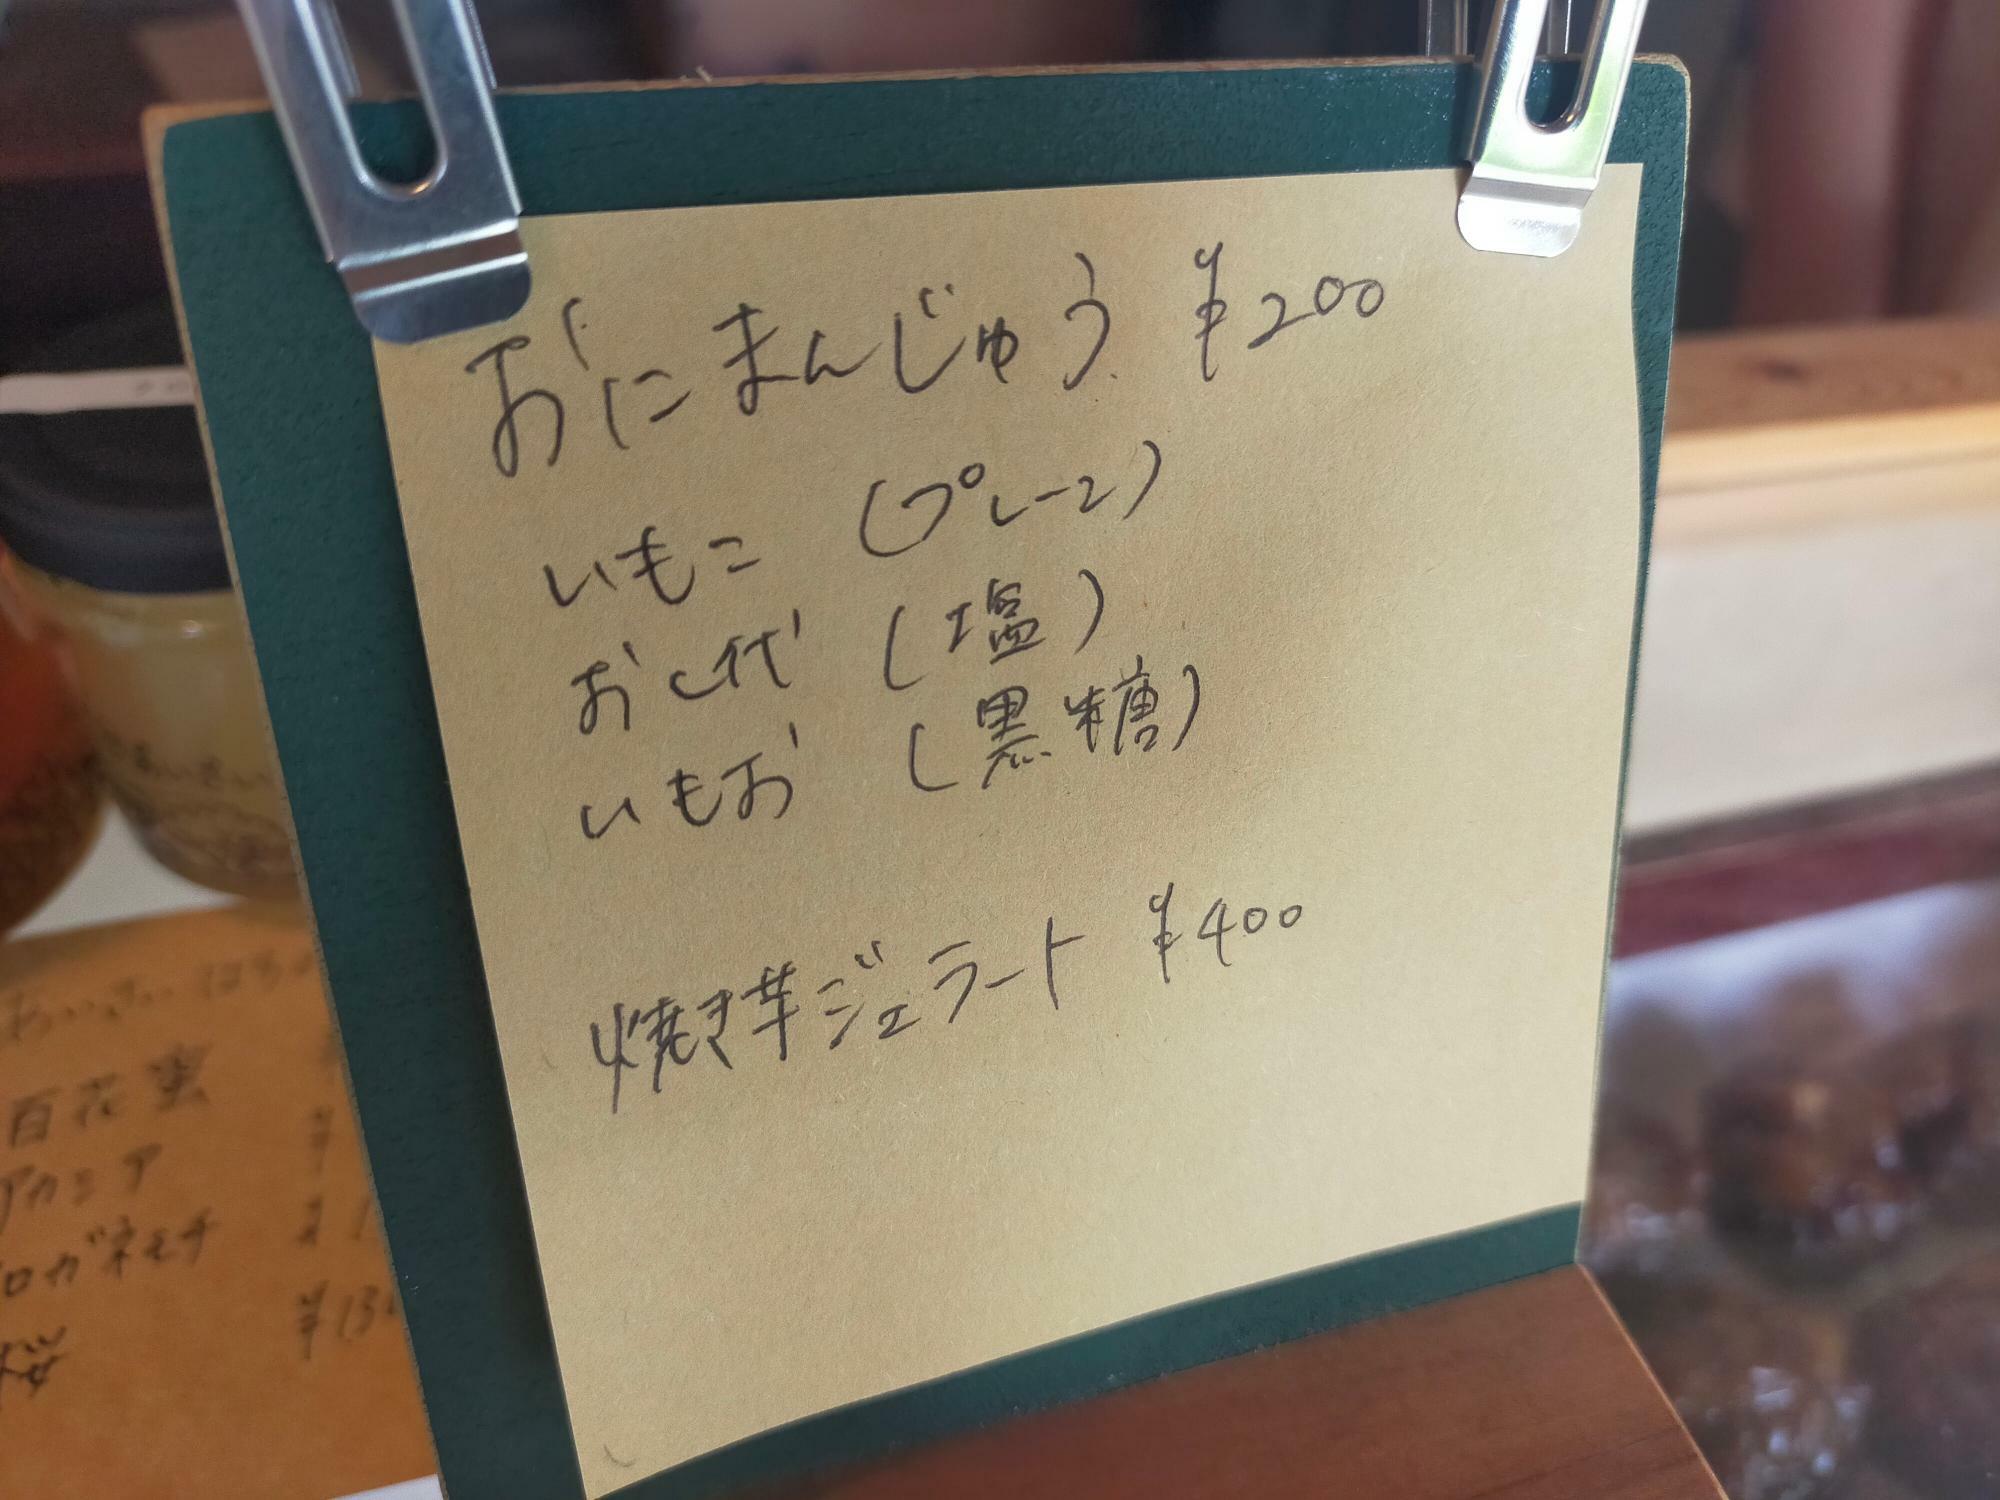 おにまんじゅう ¥200
いもこ (プレーン)
おし代 (塩)
いもお (黒糖)
焼き芋ジェラート ¥400
百花蜜
アカシア
クロガネモチ
桜